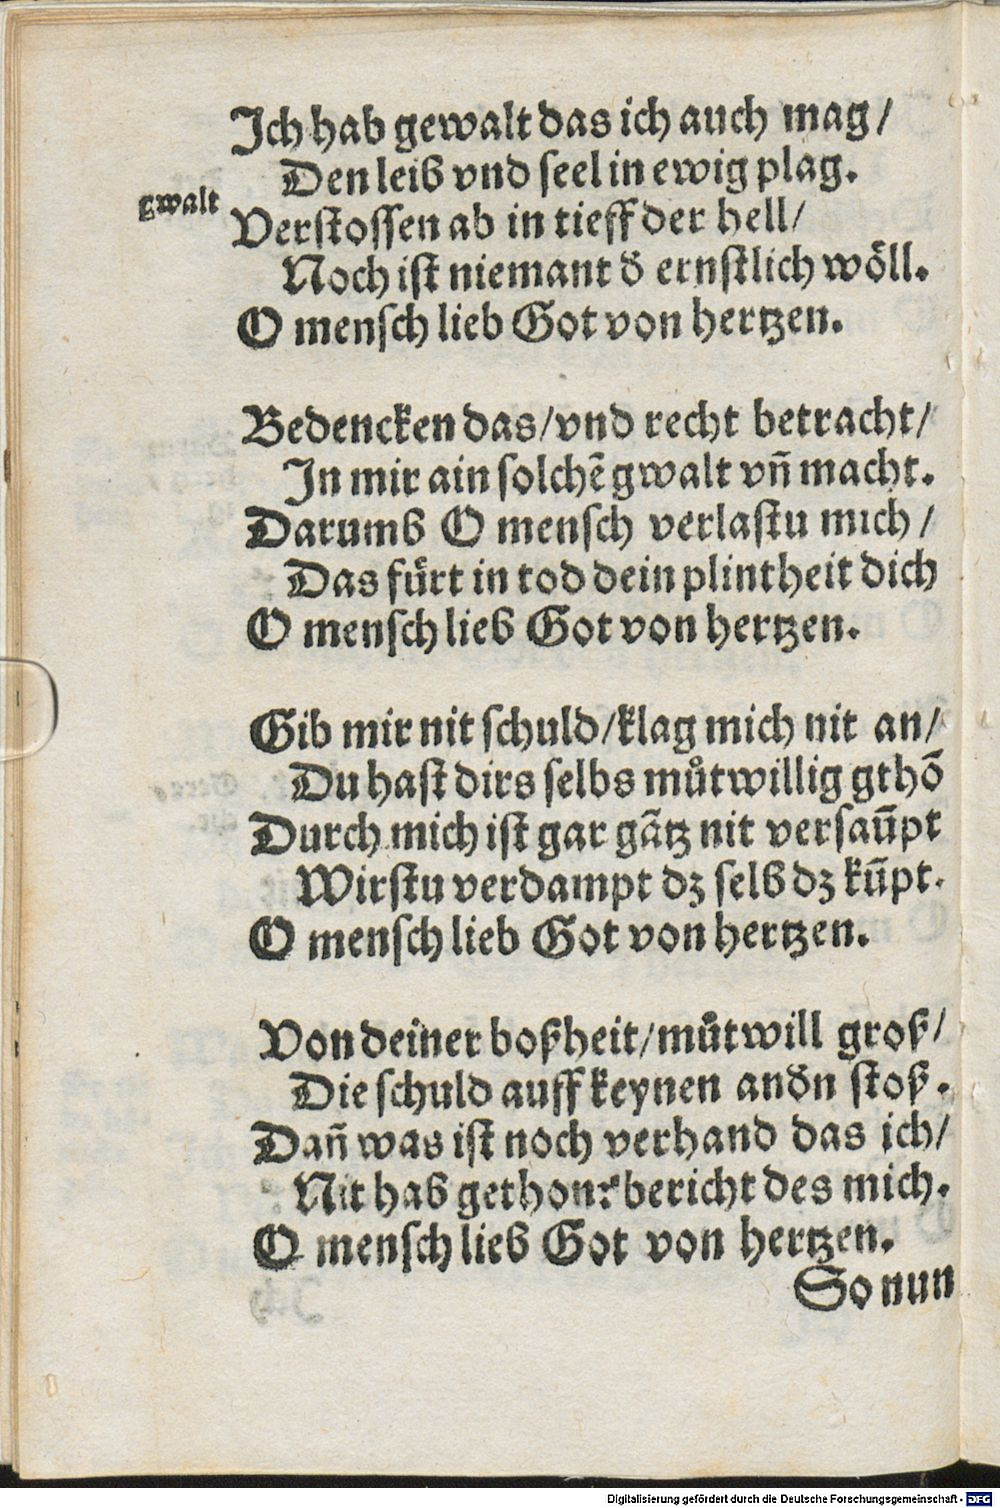 Ich hab gewalt das ich auch mag/
Den leib vnd seel in ewig plag.
gwalt
Verstossen ab in tieff der hell/
Noch ist niemant d̕ ernstlich wöll.
O mensch lieb Got von hertzen.
Bedencken das/vnd recht betracht/
In mir ain solchē gwalt vn̄ macht.
Darumb O mensch verlastu mich/
Das fürt in tod dein plintheit dich
O mensch lieb Got von hertzen.
Gib mir nit schuld/klag mich nit an/
Du hast dirs selbs můtwillig gthō
Durch mich ist gar gātz nit versaūpt
Wirstu verdampt dz selb dz kūpt.
O mensch lieb Got von hertzen.
Von deiner boßheit/můtwill groß/
Die schuld auff keynen and̕n stoß.
Dan̄ was ist noch verhand das ich/
Nit hab gethon? bericht des mich.
O mensch lieb Got von hertzen.
So nun
Digitalisierung gefördert durch die Deutsche Forschungsgemeinschaft - DFG